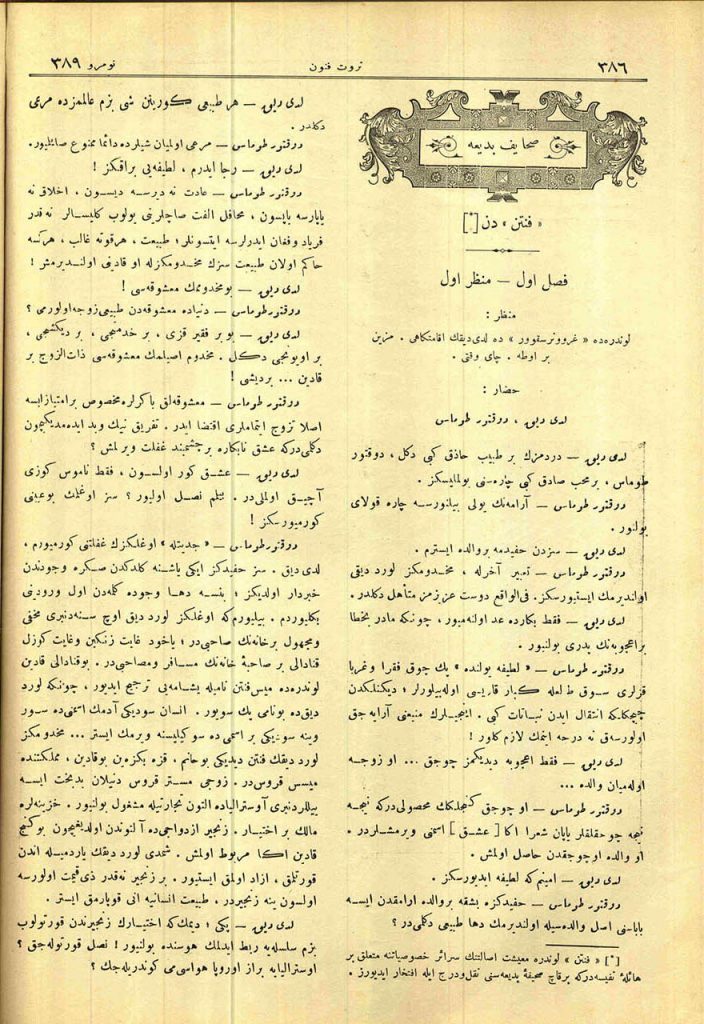 ٣٨٦
ثروت فنون
نومرو ٣٨٩
صحایف بدیعه
« فنتن » دن [*]
فصل اول — منظر اول
منظر :
لوندره‌ده « غروونرسقوور » ده لدی دیقك اقامتكاهی . مزین
بر اوطه . چای وقتی .
حضار :
لدی دیق ، دوقتور طوماس
لدی دیق — دردمزك بر طبیب حاذق كبی دكل ، دوقتور
طوماس ، برمحب صادق كبی چاره‌سنی بولمالیسكز .
دوقتور طوماس — آرامه‌نك یولی بیلنورسه چاره قولای
بولنور .
لدی دیق — سزدن حفیدمه بروالده ایسترم .
دوقتور طوماس — تعبیر آخرله ، مخدومكز لورد دیقی
اولندیرمك ایستیورسكز . فی‌الواقع دوست عزیزمز متأهل دكلدر .
لدی دیق — فقط بكارده عد اولنه‌میور ، چونكه مادر بخطا
براعجوبه‌نك پدری بولنیور .
دوقتور طوماس — « لطیفه یولنده » پك چوق فقرا وغربا
قزلری سوق طلعله كبار قاریسی اوله‌بیلورلر ؛ دیكنلكدن
چیچكلكه انتقال ایدن نباتات كبی . اینجیلرك منبعنی آرایه‌جق
اولورسه‌ق نه درجه ایتمك لازم كلور !
لدی دیق — فقط اعجوبه دیدیكمز چوجق ... او زوجه
اوله‌میان والده ...
دوقتور طوماس — او چوجق كنجلكك محصولی‌دركه نتیجه
نتیجه چوجقلقلر یاپان شعرا اكا [ عشق ] اسمنی ویرمشلردر .
او والده اوچوجقدن حاصل اولمش .
لدی دیق — امینم‌كه لطیفه ایدیورسكز .
دوقتور طوماس — حفیدكزه بشقه بروالده آرامقدن ایسه
باباسنی اصل والده‌سیله اولندیرمك دها طبیعی دكلمی‌در ؟
[*] « فنتن » لوندره معیشت اصالتنك سرائر خصوصیاتنه متعلق بر
هائلهٔ نفیسه‌دركه برقاچ صحیفهٔ بدیعه‌سنی نقل‌ودرج ایله افتخار ایدیورز .
لدی دیق — هر طبیعی كورینن شی بزم عالممزده مرعی
دكلدر .
دوقتور طوماس — مرعی اولمیان شیلرده دائما ممنوع صاییلیور .
لدی دیق — رجا ایدرم ، لطیفه‌یی براقكز !
دوقتور طوماس — عادت نه دیرسه دیسون ، اخلاق نه
یاپارسه یاپسون ، محافل الفت صاچلرینی یولوب كلیسالر نه‌قدر
فریاد وفغان ایدرلرسه ایتسونلر ؛ طبیعت ، هرقوته غالب ، هركسه
حاكم اولان طبیعت سزك مخدومكزله او قادینی اولندیرمش !
لدی دیق — بومخدومك معشوقه‌سی !
دوقتور طوماس — دنیاده معشوقه‌دن طبیعی زوجه‌اولورمی ؟
لدی دیق — بو بر فقیر قزی ، بر خدمتجی ، بر دیكیشجی ،
بر اویونجی دكل . مخدوم اصیلمك معشوقه‌سی ذات‌الزوج بر
قادین ... بردیشی !
دوقتور طوماس — معشوقه‌لق باكرلره مخصوص برامتیازایسه
اصلا تزوج ایتماملری اقتضا ایدر . تفریق نیك وبد ایده‌مدیكیچون
دكلمی‌دركه عشق نابكاره برچشمبند غفلت ویرلمش ؟
لدی دیق — عشق كور اولسون ، فقط ناموس كوزی
آچیق اولملی‌در . عقلم نصل اولیور ؟ سز اوغلمك بوعیبنی
كورمیورسكز !
دوقتور طوماس — « جدیتله » اوغلكزك غفلتنی كورمیورم ،
لدی دیق . سز حفیدكز ایكی یاشنه كلدكدن صكره وجودندن
خبردار اولدیكز ؛ بنسه دها وجوده كلمه‌دن اول ورودینی
بكلیوردم . بیلیورم‌كه اوغلكز لورد دیق اوچ سنه‌دنبری مخفی
ومجهول برخانه‌نك صاحبی‌در ؛ یاخود غایت زنكین وغایت كوزل
قنادالی بر صاحبهٔ خانه‌نك مسافر ومصاحبی‌در . بوقنادالی قادین
لوندره‌ده میس‌فنتن نامیله یشامه‌یی ترجیح ایدیور ، چونكه لورد
دیق‌ده بونامی پك سویور . انسان سودیكی آدمك اسمنی‌ده سور
وینه سودیكی بر اسمی ده سوكیلیسنه ویرمك ایستر ... مخدومكز
لورد دیقك فنتن دیدیكی بوخانم ، قزه بكزه‌ین بوقادین ، مملكتنده
میسس قروس‌در . زوجی مستر قروس دنیلان بدبخت ایسه
ییللردنبری آوسترالیاده التون تجارتیله مشغول بولنیور . خزینه‌لره
مالك بر اختیار . زنجیر ازدواجی‌ده آلتوندن اولدیغیچون بوكنج
قادین اكا مربوط اولمش . شمدی لورد دیقك یاردمیله اندن
قورتلمق ، ازاد اولمق ایستیور . بر زنجیر نه‌قدر ذی‌قیمت اولورسه
اولسون ینه زنجیردر ، طبیعت انسانیه انی قوپارمق ایستر .
لدی دیق — پكی ؛ دیمك‌كه اختیارك زنجیرندن قورتولوب
بزم سلسله‌یه ربط ایدلمك هوسنده بولنیور ! نصل قورتوله‌جق ؟
اوسترالیایه براز اوروپا هواسی‌می كوندریله‌جك ؟